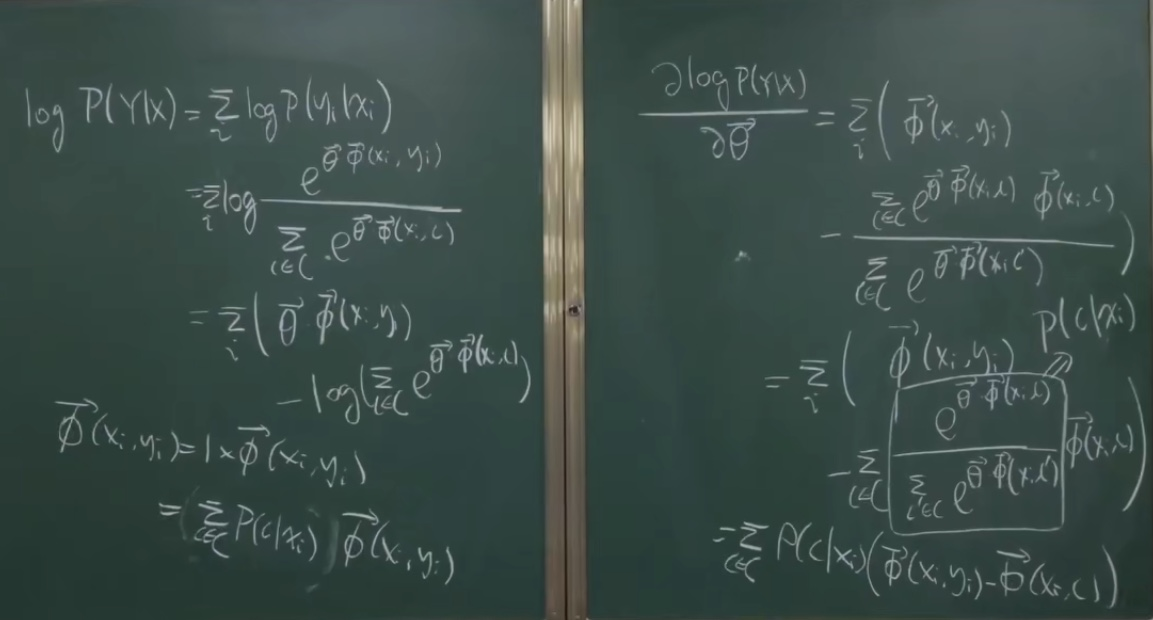 log P(Y|X) = Σ_i log P(y_i|x_i)
= Σ_i log e^{θ⃗ φ⃗(x_i, y_i)} / Σ_{c∈C} e^{θ⃗ φ⃗(x_i, c)}
= Σ_i ( θ⃗ φ⃗(x_i, y_i)
− log( Σ_{c∈C} e^{θ⃗ φ⃗(x_i, c)} )
φ⃗(x_i, y_i) = 1 × φ⃗(x_i, y_i)
= ( Σ_{c∈C} P(c|x_i) ) φ⃗(x_i, y_i)
∂ log P(Y|X) / ∂θ⃗ = Σ_i ( φ⃗(x_i, y_i)
− Σ_{c∈C} e^{θ⃗ φ⃗(x_i, c)} φ⃗(x_i, c) / Σ_{c∈C} e^{θ⃗ φ⃗(x_i, c)} )
P(c|x_i)
= Σ_i ( φ⃗(x_i, y_i)
− Σ_{c∈C} e^{θ⃗ φ⃗(x_i, c)} / Σ_{c'∈C} e^{θ⃗ φ⃗(x_i, c')} φ⃗(x_i, c) )
= Σ_{c∈C} P(c|x_i) ( φ⃗(x_i, y_i) − φ⃗(x_i, c) )